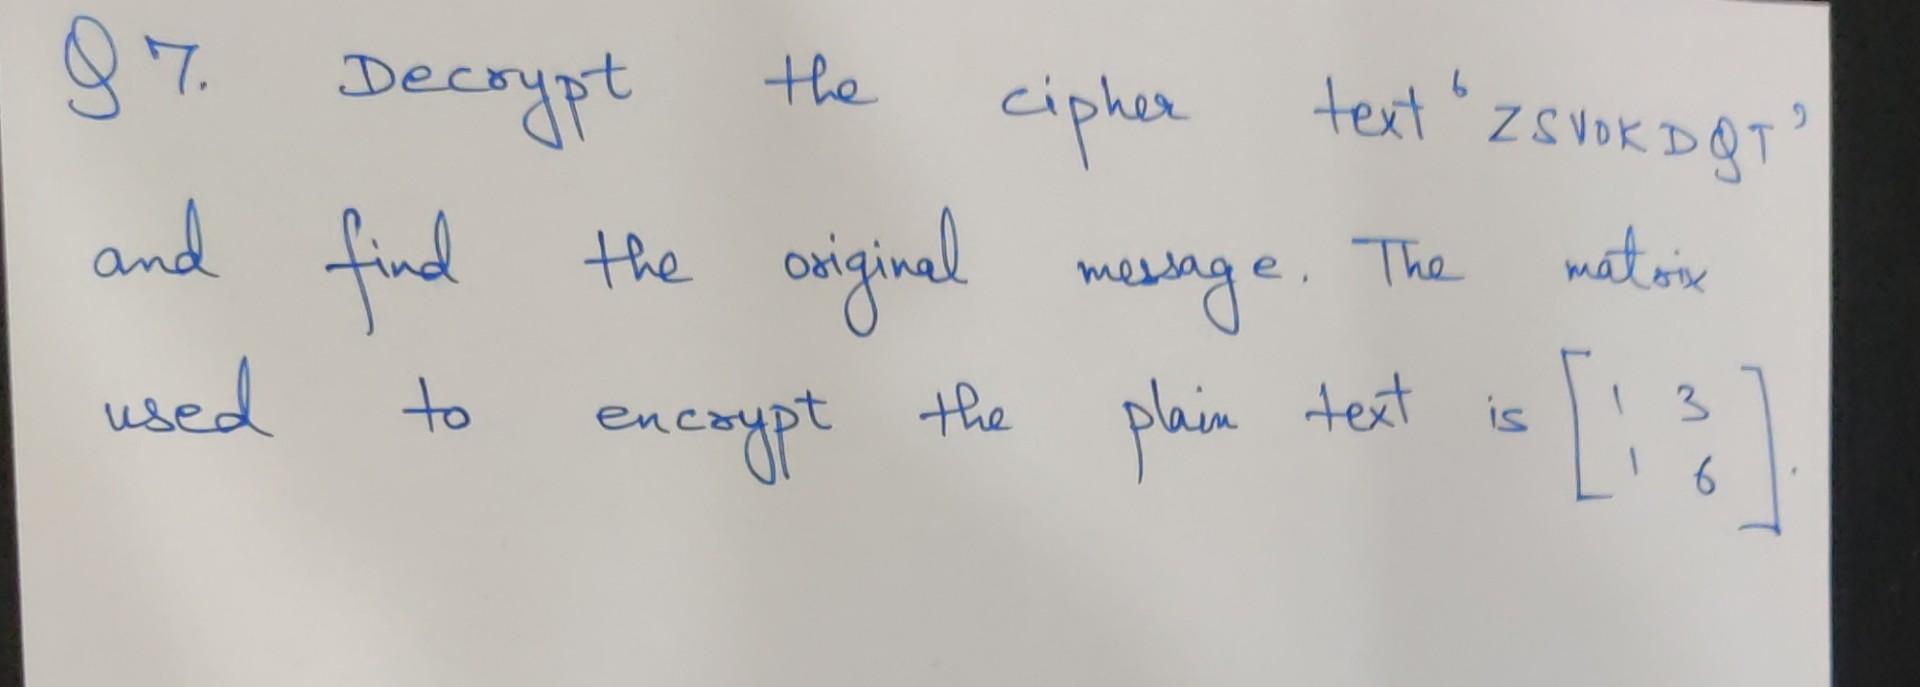 Q 7. Decrypt the cipher text 'ZSVOKDQT'
and find the original message. The matrix
used to encrypt the plain text is [1 3
1 6].